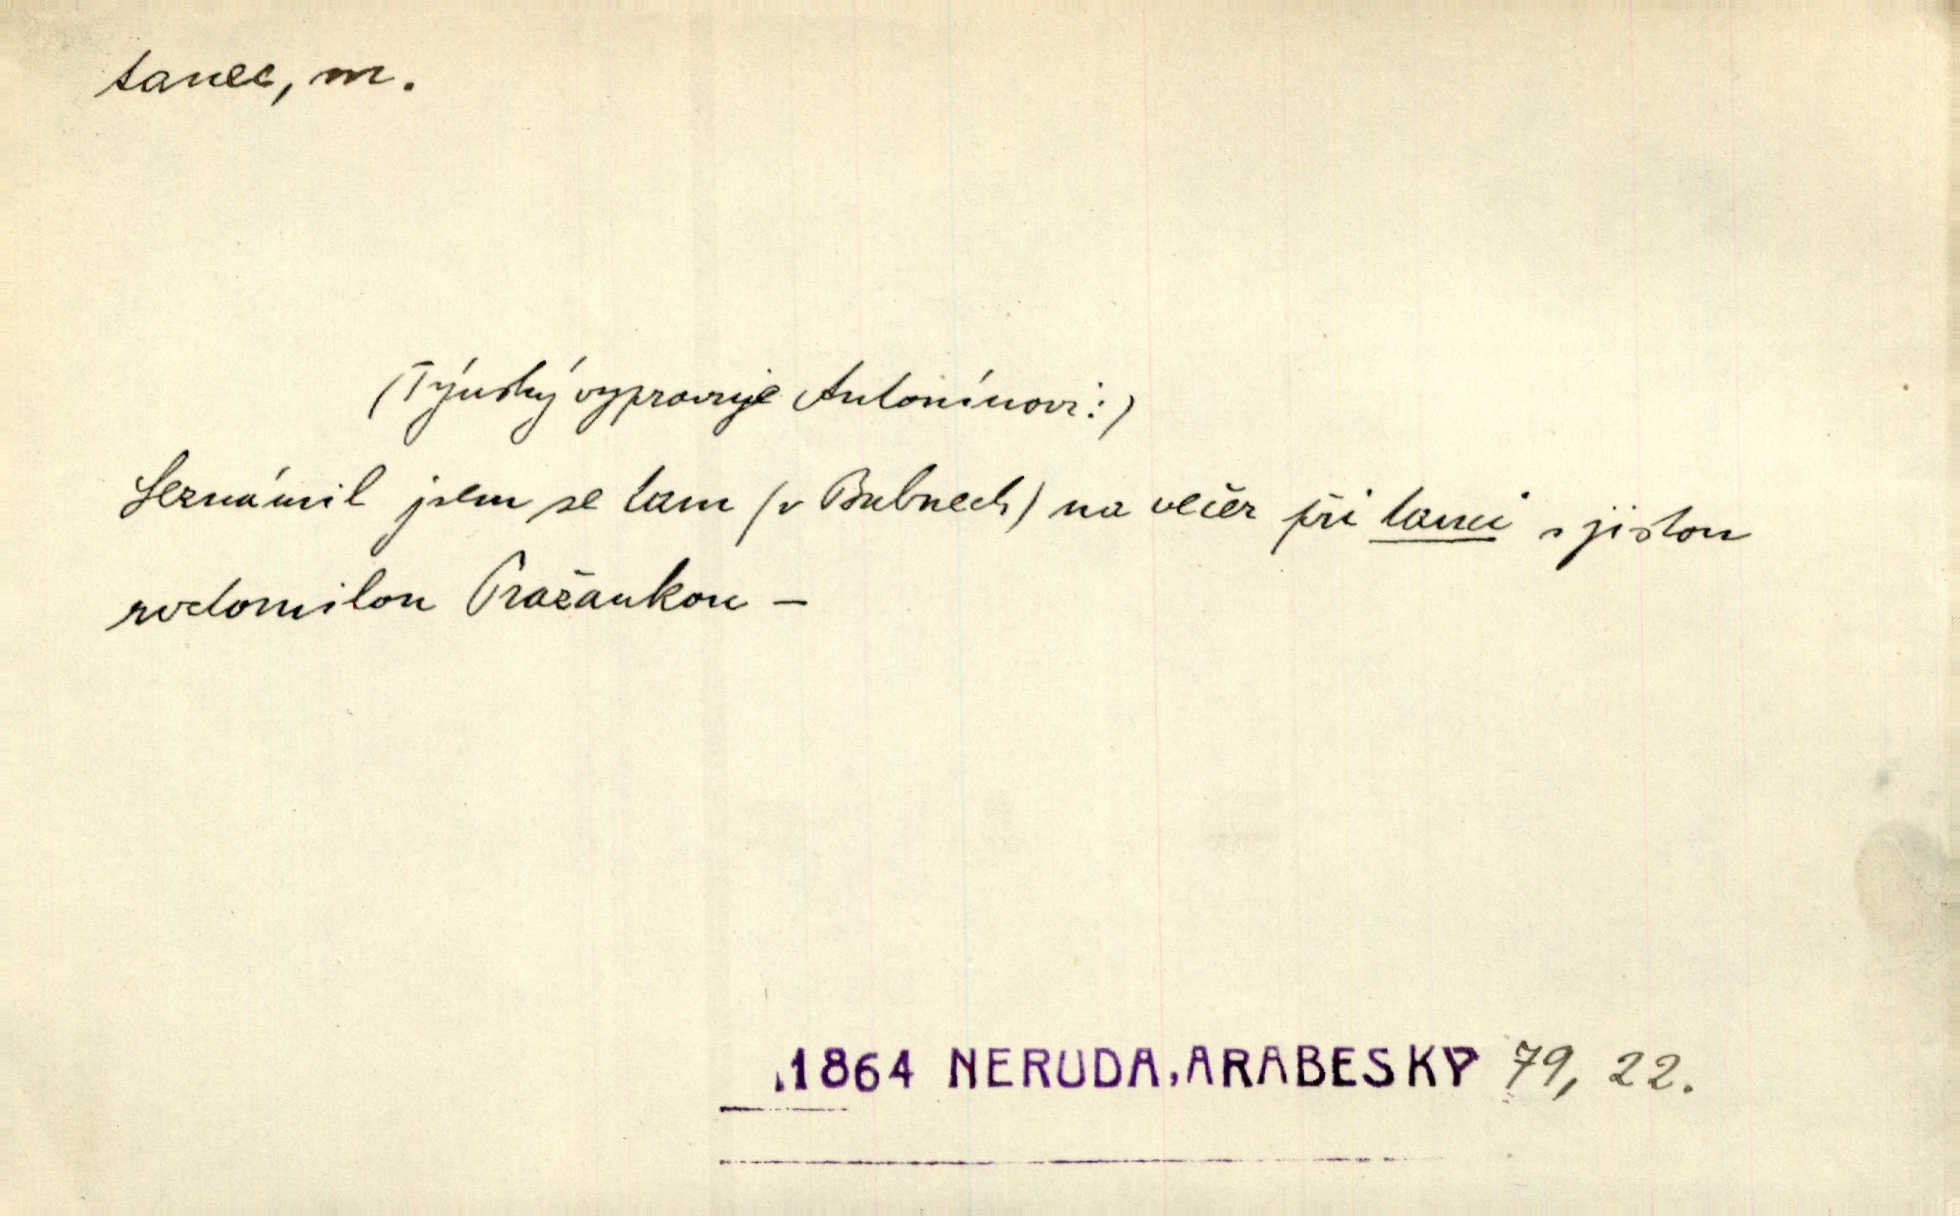 tanec, m.
(Týnský vypravuje Antonínovi:)
Seznámil jsem se tam (v Bubnech) na večer při tanci s jistou
roztomilou Pražankou –
1864 NERUDA, ARABESKY 79, 22.